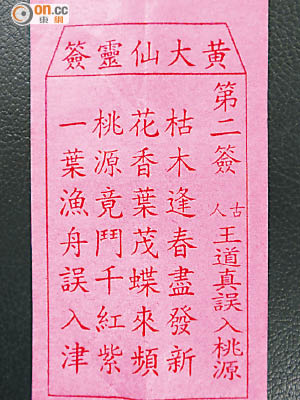 on.cc
東網
黃大仙靈簽
第二簽
古人
王道真誤入桃源
枯木逢春盡發新
花香葉茂蝶來頻
桃源竟鬥千紅紫
一葉漁舟誤入津